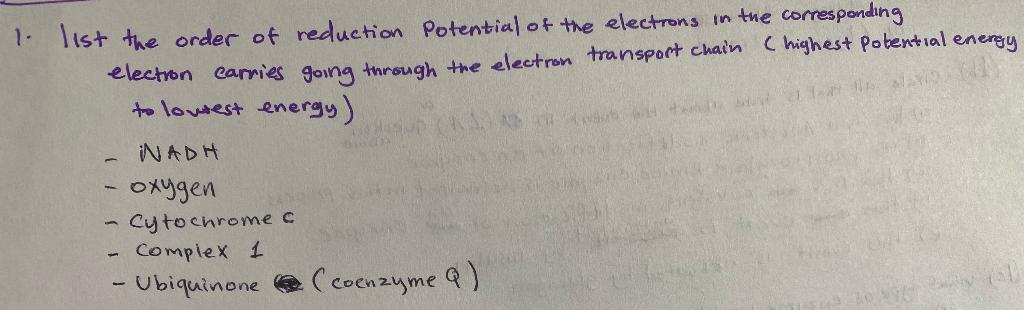 1. list the order of reduction Potential of the electrons in the corresponding
electron carries going through the electron transport chain (highest Potential energy
to lowest energy)
- NADH
- oxygen
- Cytochrome c
- Complex 1
- Ubiquinone (coenzyme Q)